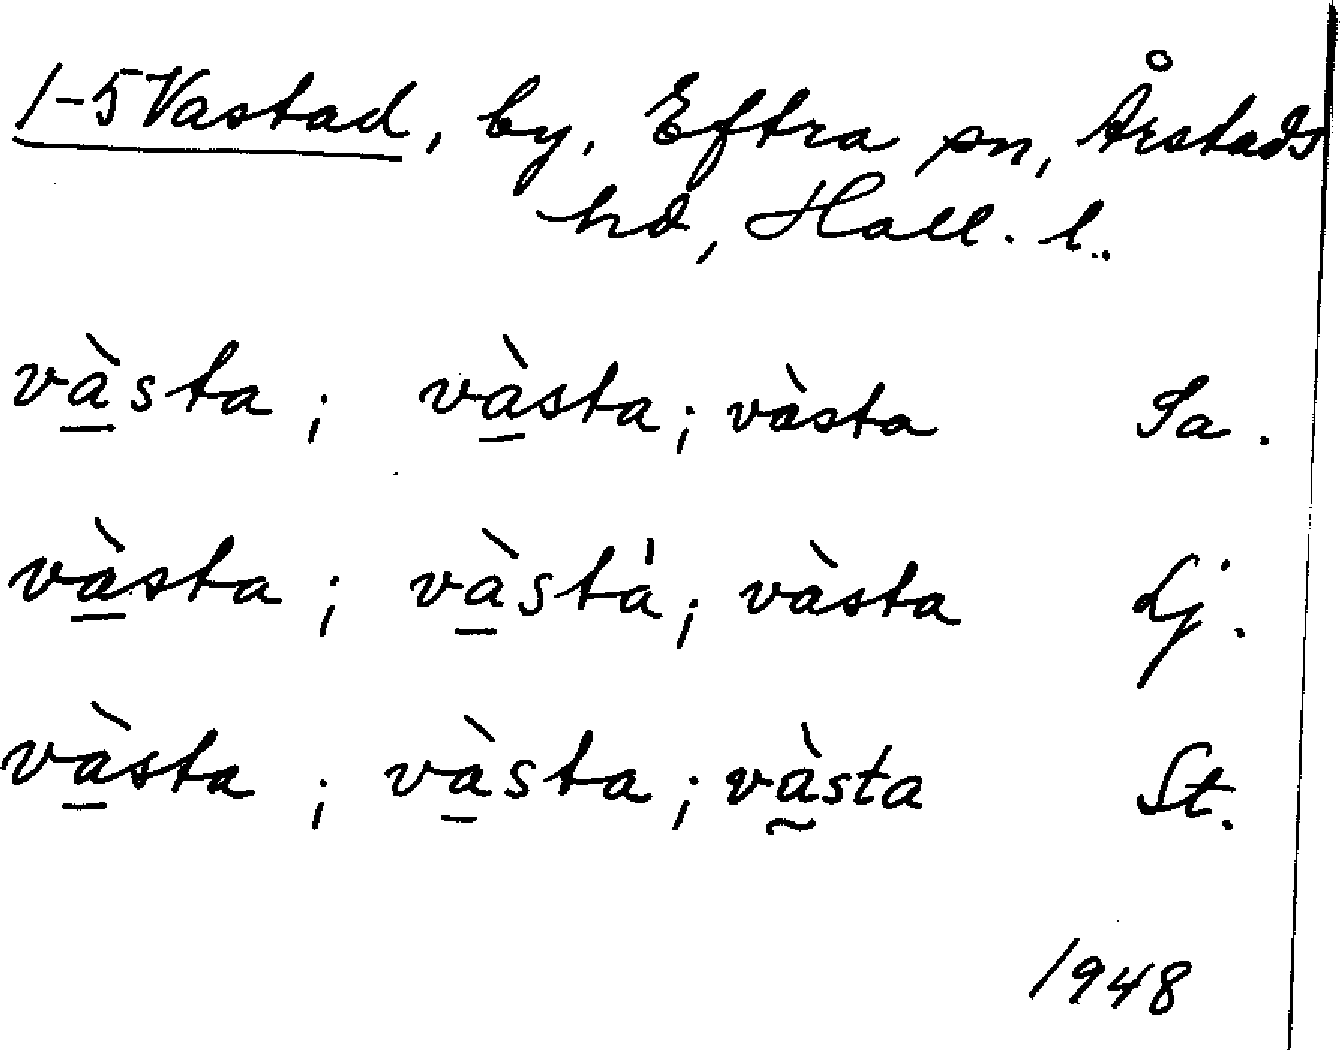 1-5 Vastad, by, Eftra sn, Årstads
hd, Hall. l.
và̱sta; và̱sta; vàsta Sa.
và̱sta; và̱stà; vàsta Lj.
và̱sta; và̱sta; và̰sta St.
1948